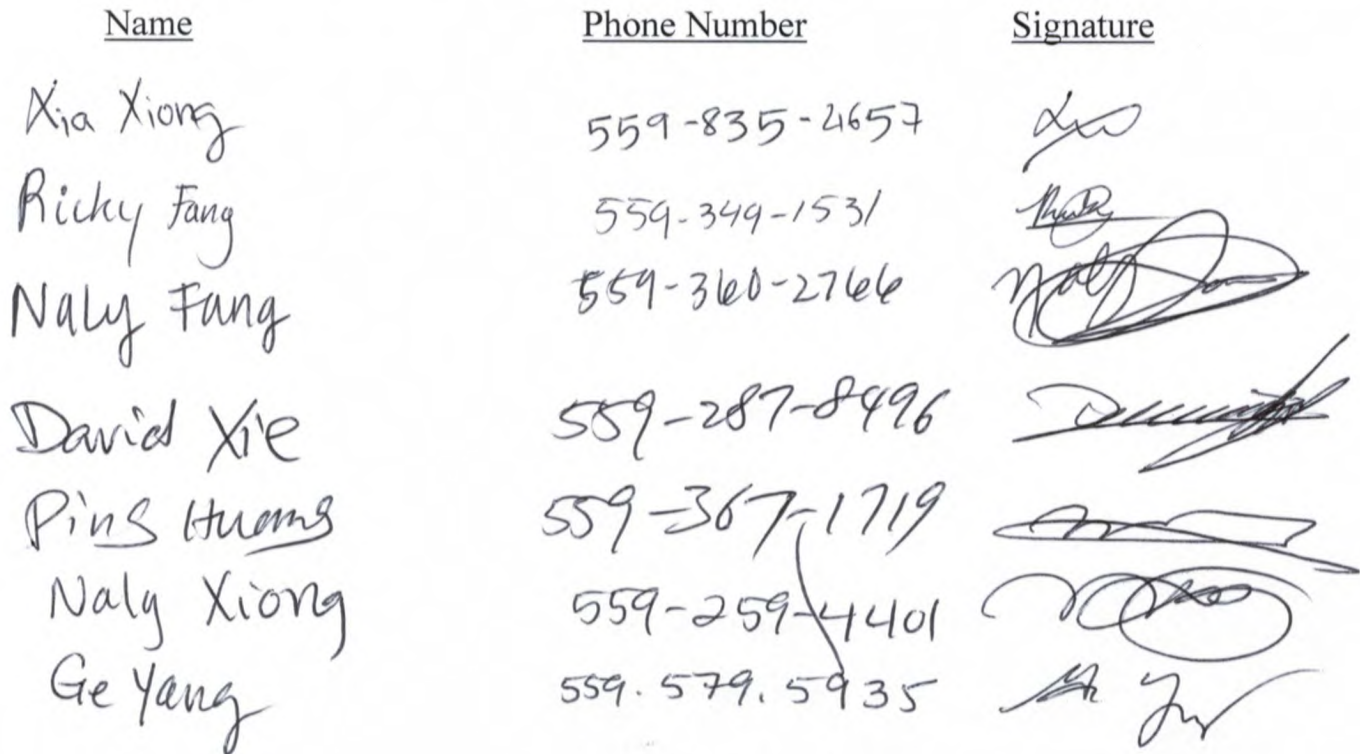 Name Phone Number Signature
Xia Xiong 559-835-4657
Ricky Fang 559-349-1531
Naly Fang 559-360-2766 Naly
David Xie 559-287-8496
Ping Huang 559-367-1719
Naly Xiong 559-259-4401
Ge Yang 559.579.5935